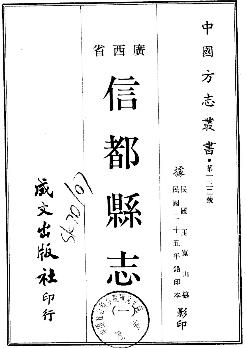 中國方志叢書·第二〇二號
據民國玉崑山纂
民國二十五年鉛印本影印
廣西省
信都縣志
成文出版社印行